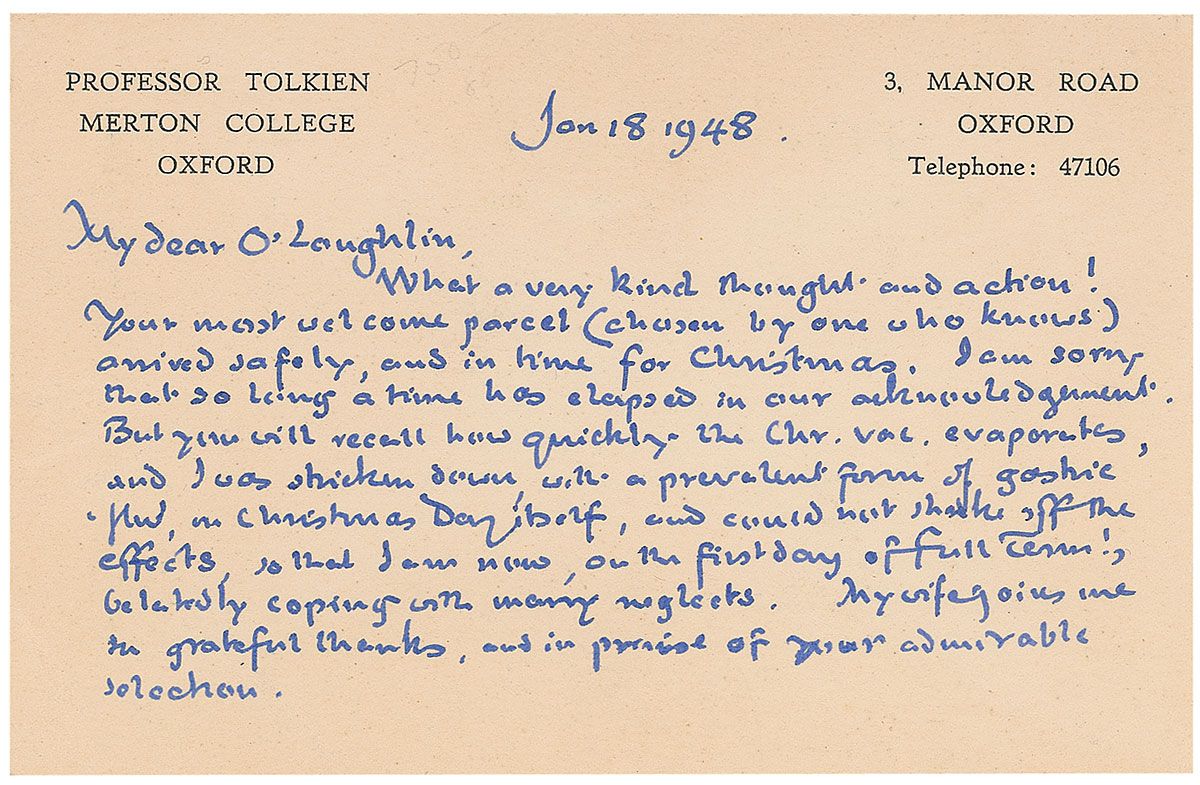 PROFESSOR TOLKIEN
MERTON COLLEGE
OXFORD
3, MANOR ROAD
OXFORD
Telephone: 47106
Jan 18 1948.
My dear O'Loughlin,
What a very kind thought and action!
Your most welcome parcel (chosen by one who knows)
arrived safely, and in time for Christmas. I am sorry
that so long a time has elapsed in our acknowledgement.
But you will recall how quickly the Chr. vac. evaporates,
and I was stricken down with a prevalent form of gastric
'flu', on Christmas Day itself, and could not shake off the
effects, so that I am now, on the first day of Full Term!,
belatedly coping with many neglects. My wife joins me
in grateful thanks, and in praise of your admirable
selection.